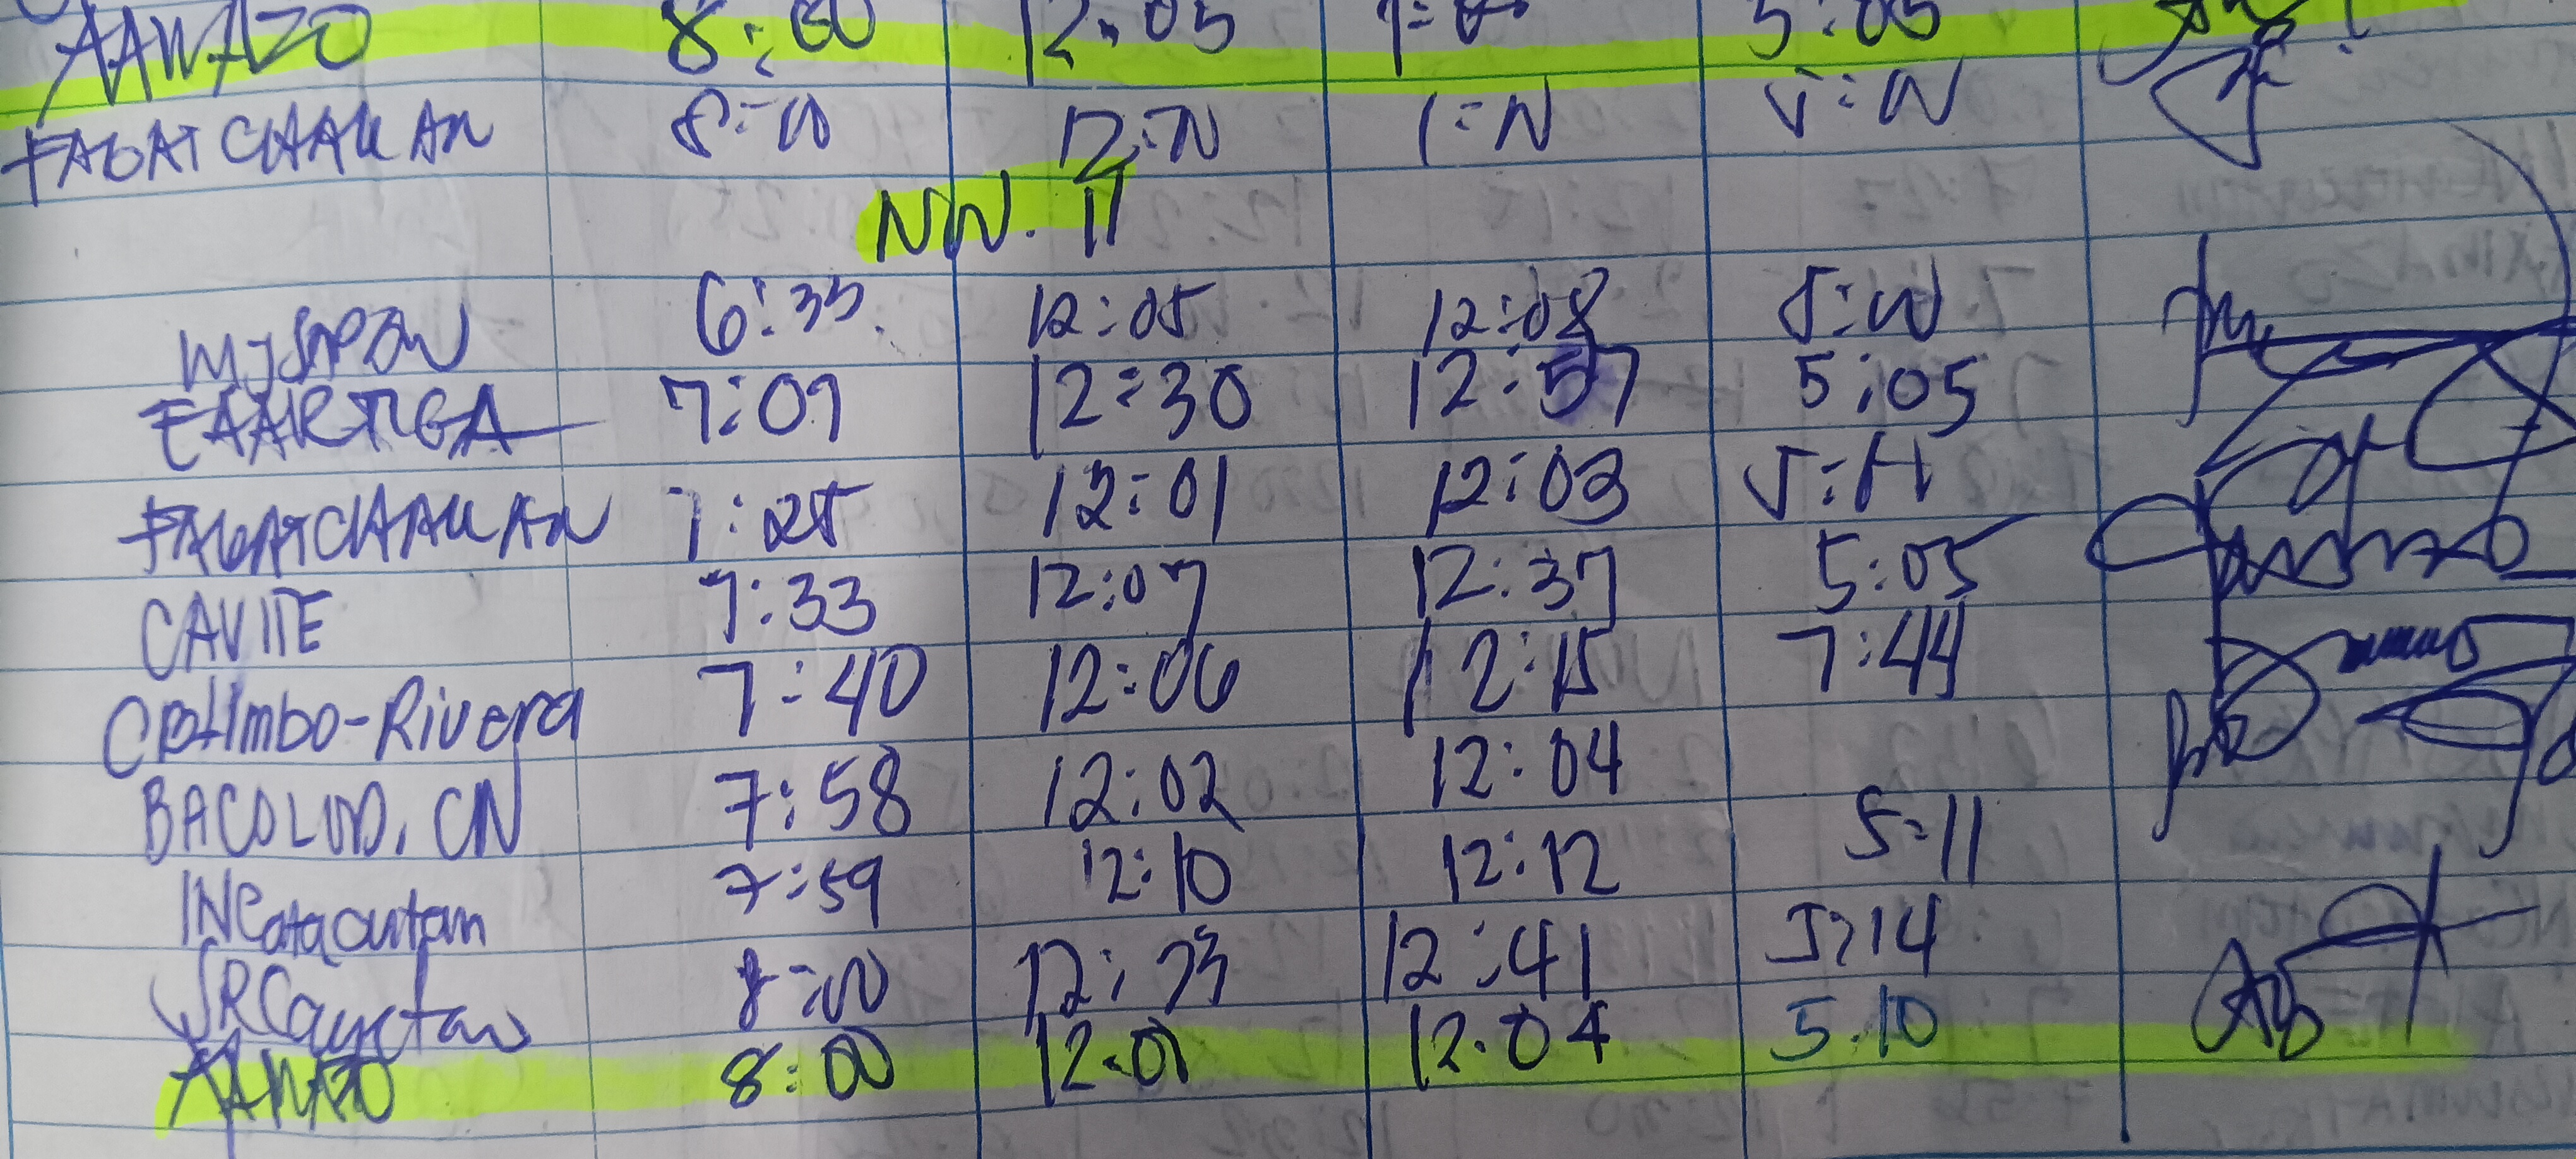 AAWAZO 8:00 12.05 5:05
FAGATCHALIAN 8:00 12:N 1:N 5:00
NOV. 11
6:35 12:05 12:08 5:00
EAARTIGA 7:09 12:30 12:57 5:05
FAGATCHALIAN 7:25 12:01 12:03 5:11
CAVITE 7:33 12:07 12:37 5:05
Rivera 7:40 12:06 12:15 7:44
BACOLOD, CN 7:58 12:02 12:04
INCatacutan 7:59 12:10 12:12 5:11
JRCayetano 8:00 12:41 5:14
AAWAZO 8:00 12.01 12.04 5.10